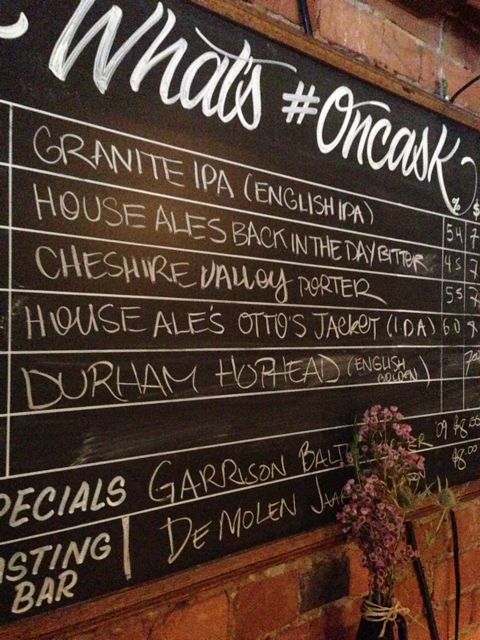 What's #Oncask
% $
GRANITE IPA (ENGLISH IPA) 5.4 7
HOUSE ALES BACK IN THE DAY BITTER 4.5 7
CHESHIRE VALLEY PORTER 5.5 7
HOUSE ALE'S OTTO'S JACKET (IDA) 6.0 8
DURHAM HOPHEAD (ENGLISH GOLDEN)
SPECIALS GARRISON 09 $8.00
TASTING BAR DE MOLEN $8.00